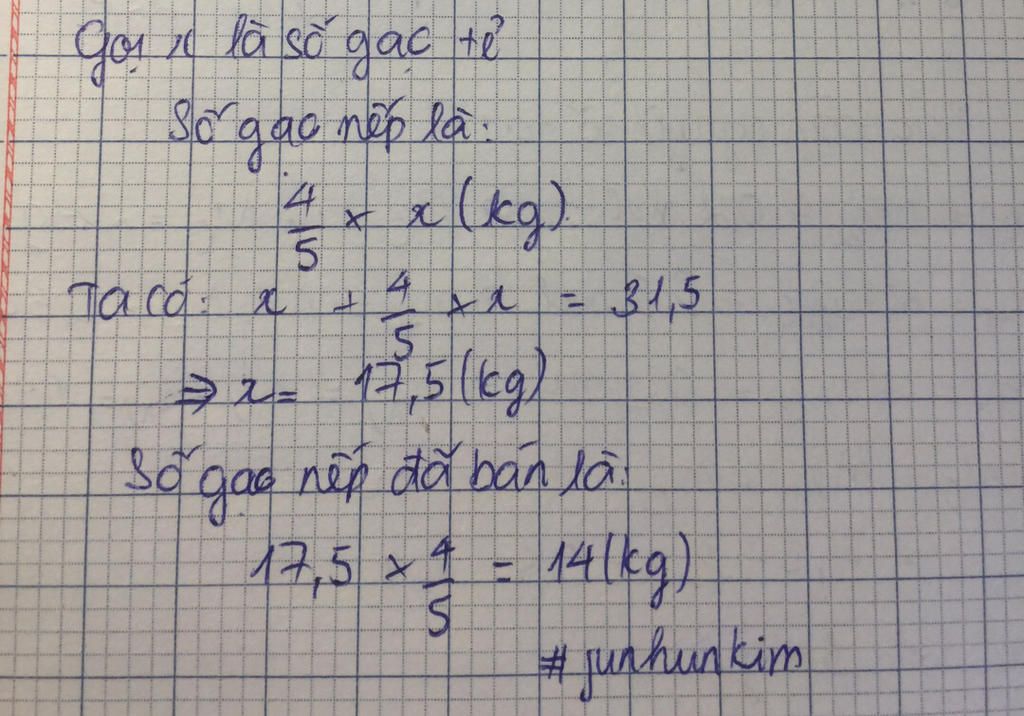 Gọi x là số gạo tẻ
Số gạo nếp là:
4/5 × x (kg)
Ta có: x + 4/5 × x = 31,5
⇒ x = 17,5 (kg)
Số gạo nếp đã bán là:
17,5 × 4/5 = 14 (kg)
# junhunkim